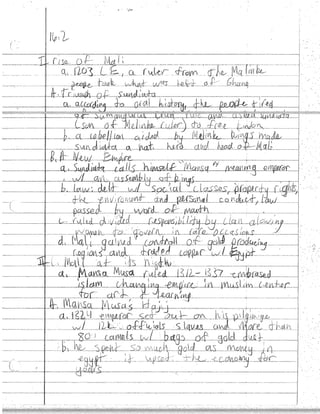 16.2
I rise of Mali
a. 1203 CE, a ruler from the Malinke
people took what was left of Ghana
A. Triumph of sundiata
a. according to oral history, the people tired
of rule and asked sundiata
(son of Melinke ruler) to free
b. a rebellion aided by Melinke kings made
sundiata a hero and head of Mali
B. A New Empire
a. Sundiata calls himself "Mansa" meaning emperor
w/ an assembly of kings
b. law: delt w/ social classes, property rights,
the environment and personal conduct, law
passed by word of mouth
c. ruled divided responsibility by clan alowing
women to govern in rare occasions
d. Mali gained controll of gold producing
regions and traded copper w/ Egypt
II Mali at its hight
a. Mansa Musa ruled 1312-1337 embrased
islam changing empire in muslim center
for art & learning
A. Mansa Musa's Hajj
a. 1324 emperor set out on his pilgrimage
w/ 12k officials slaves and more than
80 camels w/ bags of gold dust
b. he spent so much gold as money in
egypt it upset the economy for
years